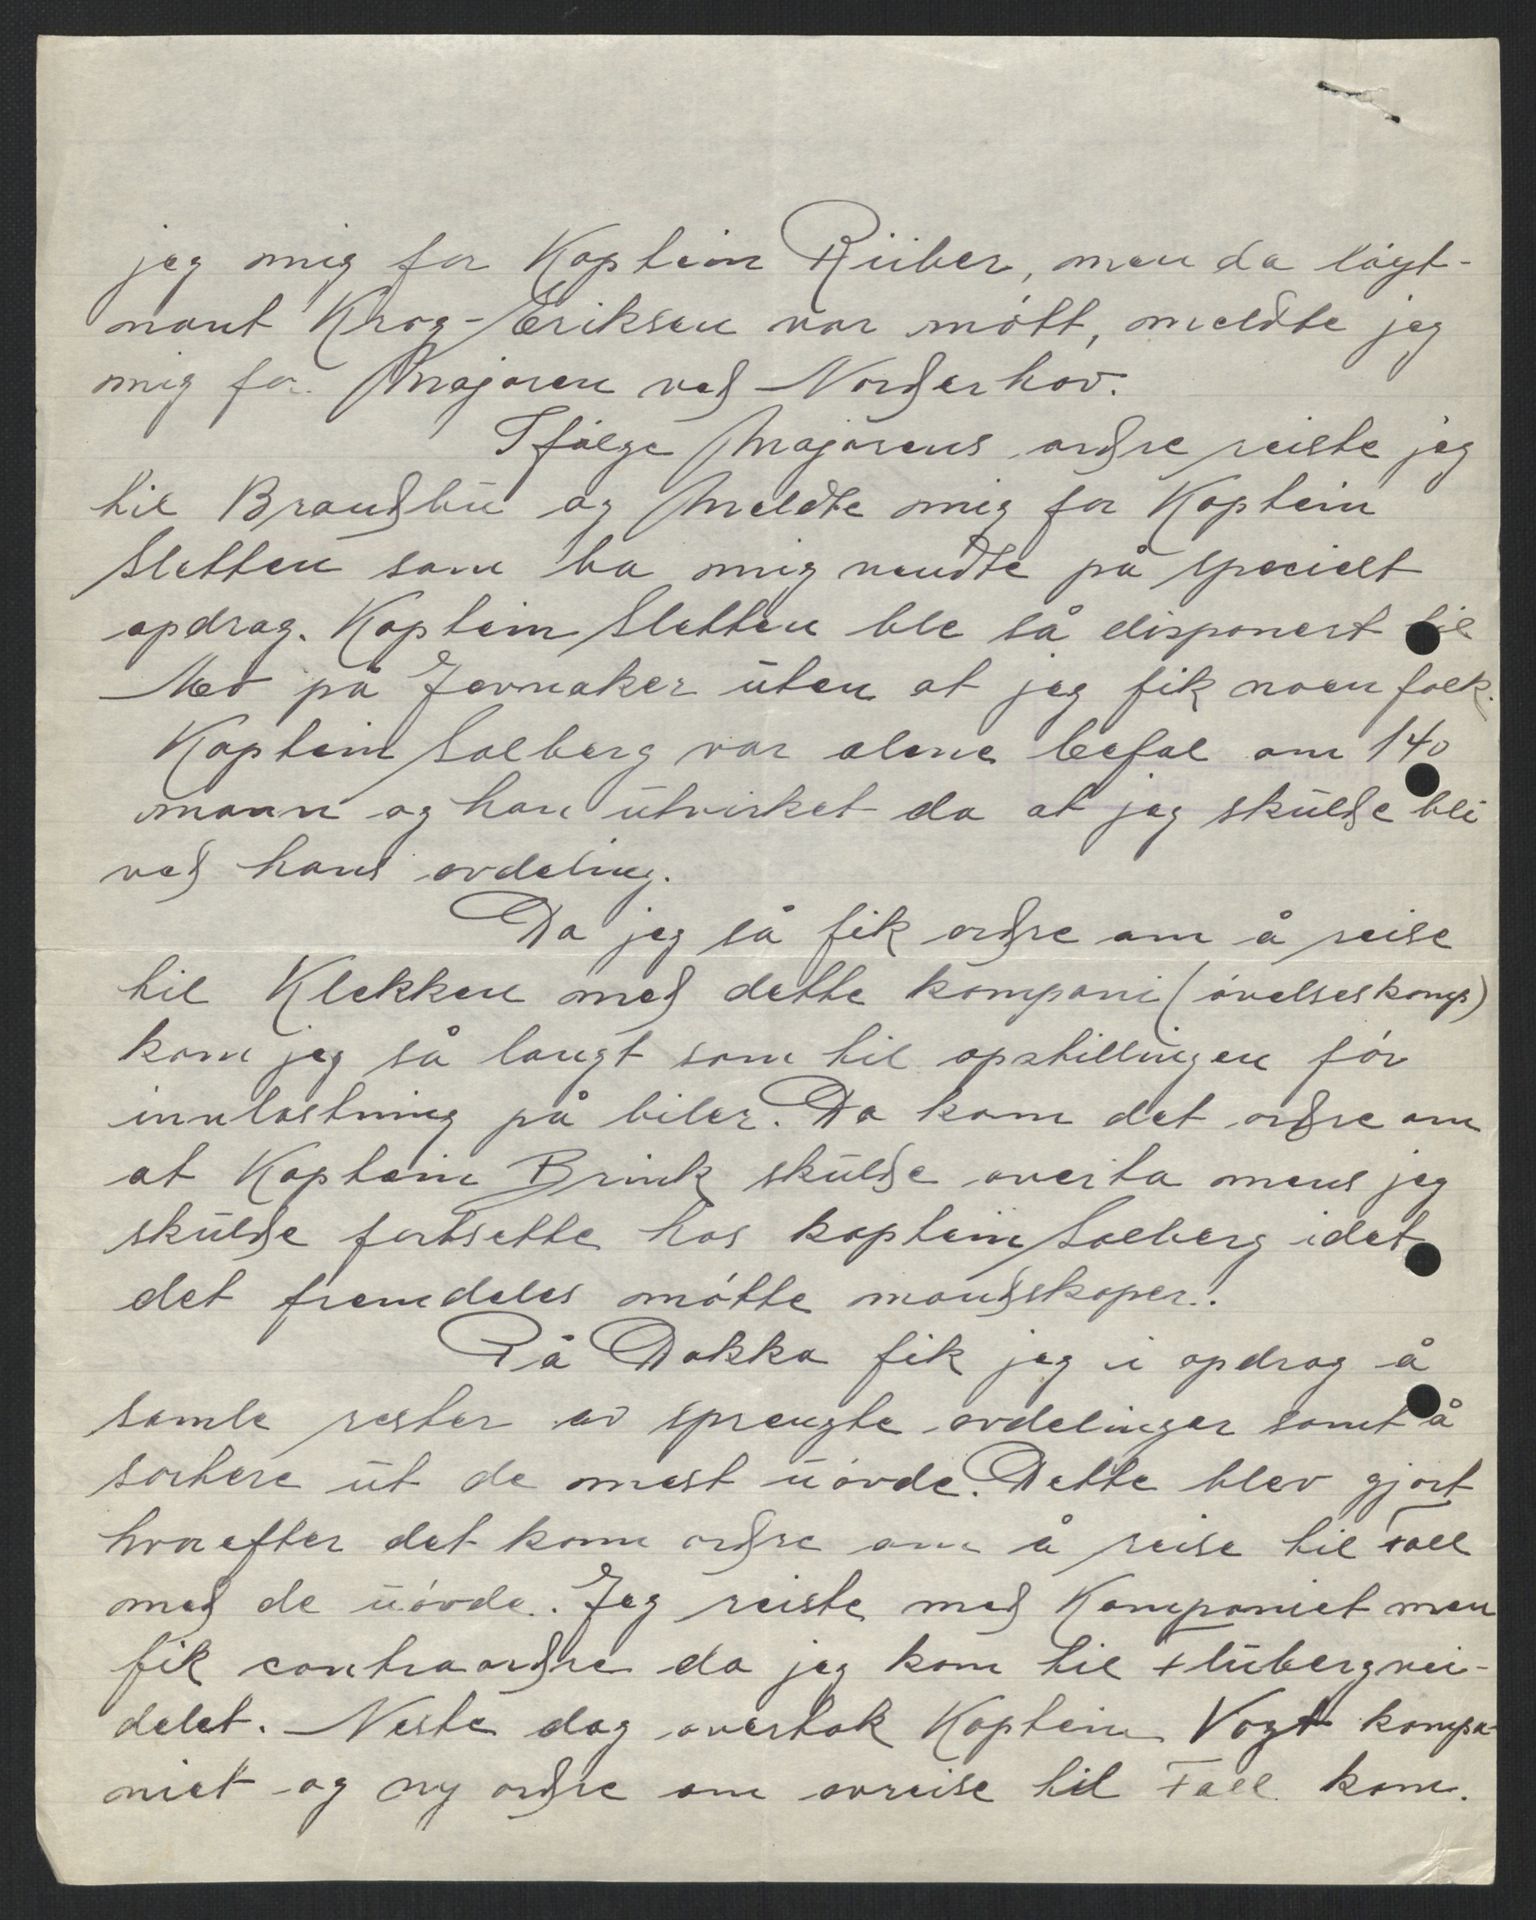 jeg mig for Kaptein Rüber, men da löyt-
nant Krog-Eriksen var mött, meldte jeg
mig for Majoren ved Norderhov.
Ifölge Majorens ordre reiste jeg
til Brandbu og meldte mig for Kaptein
Sletten som ba mig vendte på specielt
opdrag. Kaptein Sletten ble så disponert til
Mo på Jevnaker uten at jeg fik noen folk.
Kaptein Solberg var alene befal om 140
mann og han utvirket da at jeg skulde bli
ved hans avdeling.
Da jeg så fik ordre om å reise
til Klekken med dette kompani (övelseskomp)
kom jeg så langt som til opstillingen för
innlastning på biler. Da kom det ordre om
at Kaptein Brink skulde overta mens jeg
skulde fortsette hos kaptein Solberg idet
det fremdeles mötte mandskaper.
På Dokka fik jeg i opdrag å
samle rester av sprengte avdelinger samt å
sortere ut de mest uövde. Dette blev gjort
hvorefter det kom ordre om å reise til Fall
med de uövde. Jeg reiste med Kompaniet men
fik contraordre da jeg kom til Flubergvei-
delet. Neste dag overtok Kaptein Vogt kompa-
niet og ny ordre om avreise til Fall kom.